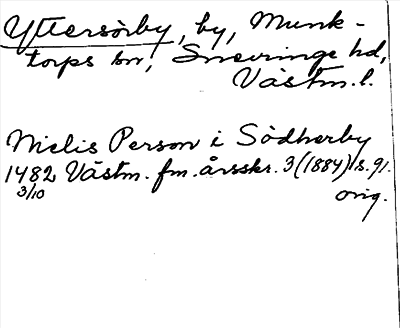 Yttersörby, by, Munk-
torps sn, Snevringe hd,
Västm. l.
Nielis Person i Södherby
1482 Västm. fm. årsskr. 3 (1884) s. 91.
3/10 orig.